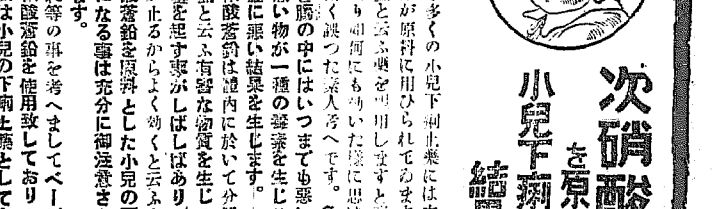 次硝酸
を原
小兒下痢
結
多くの小兒下痢止藥には
が原料に用ひられてゐま
と云ふ藥を服用しますと
り如何にも効いた樣に思
く誤つた素人考へです。
腸の中にはいつまでも惡
い物が一種の毒素を生じ
に惡い結果を生じます。
酸蒼鉛は體内に於いて分
と云ふ有害な物質を生じ
を起す事がしばしばあり
止るからよく効くと云ふ
酸蒼鉛を原料とした小兒の
になる事は充分に御注意さ
ます。
等の事を考へましてベー
酸蒼鉛を使用致しており
は小兒の下痢止藥として